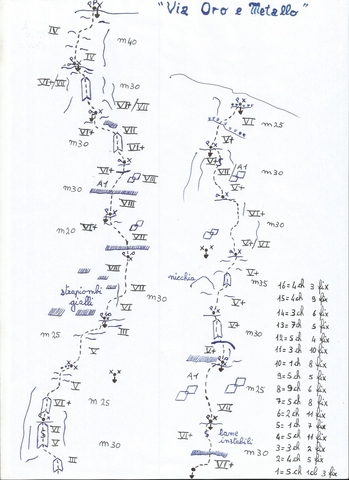 "Via Oro e Metallo"
IV
m40
IV
VI+/VII
m30
VI+/VII
VII
VI+
VI+
m30
VI+
VIII
A1
m30
VIII
VI+
m20
VII
VIII
VIII
strapiombi
gialli
VI+
m30
III
m25
V
V
m25
VI+
VI
VI
V
m30
III
m25
VI
V+
A1
VI+
V
m30
VI+
VI
m30
V+
nicchia
V
m35
V+
V+
m30
A1
m25
VI
lame
instabili
VI+
m30
16=4ch 3 fix
15=4ch 9 fix
14=3ch 6 fix
13=7ch 5 fix
12=5ch 4 fix
11=3ch 10 fix
10=1ch 8 fix
9=5ch 5 fix
8=9ch 6 fix
7=5ch 8 fix
6=2ch 11 fix
5=1ch 7 fix
4=5ch 11 fix
3=3ch 2 fix
2=4ch 5 fix
1=5ch 1ch 3 fix